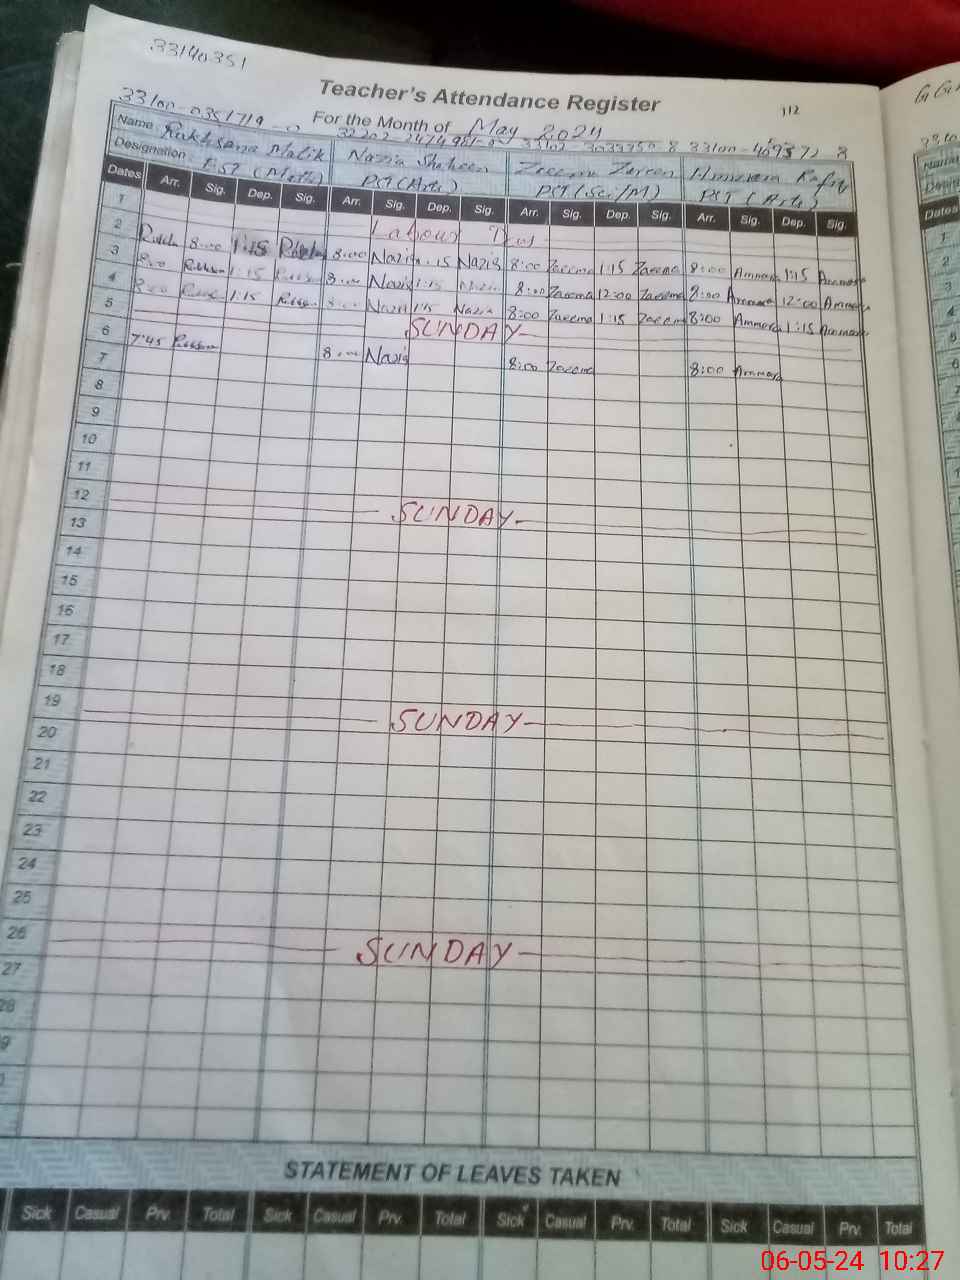 33140351
Teacher's Attendance Register
112
For the Month of May 2024
Name Rukhsana Malik Nazia Shaheen Zareen
Designation EST (Math) PCT (Arts) PCT (Sci/M) PCT (Arts)
Dates Arr. Sig. Dep. Sig. Arr. Sig. Dep. Sig. Arr. Sig. Dep. Sig. Arr. Sig. Dep. Sig.
1 Labour Day
2 8:00 1:15 8:00 Nazia 1:15 Nazia 8:00 Zaeema 1:15 Zaeema 8:00 Ammara 1:15 Ammara
3 8:00 1:15 8:00 Nazia 1:15 Nazia 8:00 Zaeema 12:00 Zaeema 8:00 Ammara 12:00 Ammara
4 8:00 1:15 8:00 Nazia 1:15 Nazia 8:00 Zaeema 1:15 Zaeema 8:00 Ammara 1:15 Ammara
5 SUNDAY
6 7:45 8:00 Nazia 8:00 Zaeema 8:00 Ammara
7
8
9
10
11
12 SUNDAY
13
14
15
16
17
18
19 SUNDAY
20
21
22
23
24
25
26 SUNDAY
27
28
9
STATEMENT OF LEAVES TAKEN
Sick Casual Prv. Total Sick Casual Prv. Total Sick Casual Prv. Total Sick Casual Prv. Total
06-05-24 10:27
Dates
1
2
3
4
5
6
7